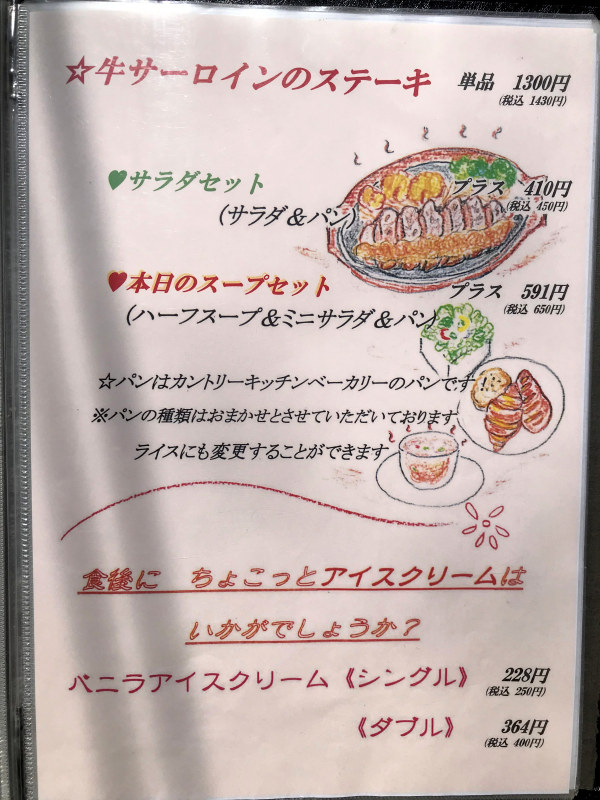 ☆牛サーロインのステーキ 単品 1300円
(税込 1430円)
♥サラダセット プラス 410円
(サラダ＆パン) (税込 450円)
♥本日のスープセット プラス 591円
(ハーフスープ＆ミニサラダ＆パン) (税込 650円)
☆パンはカントリーキッチンベーカリーのパンです！
※パンの種類はおまかせとさせていただいております
ライスにも変更することができます
食後に ちょこっとアイスクリームは
いかがでしょうか？
バニラアイスクリーム《シングル》 228円
(税込 250円)
《ダブル》 364円
(税込 400円)